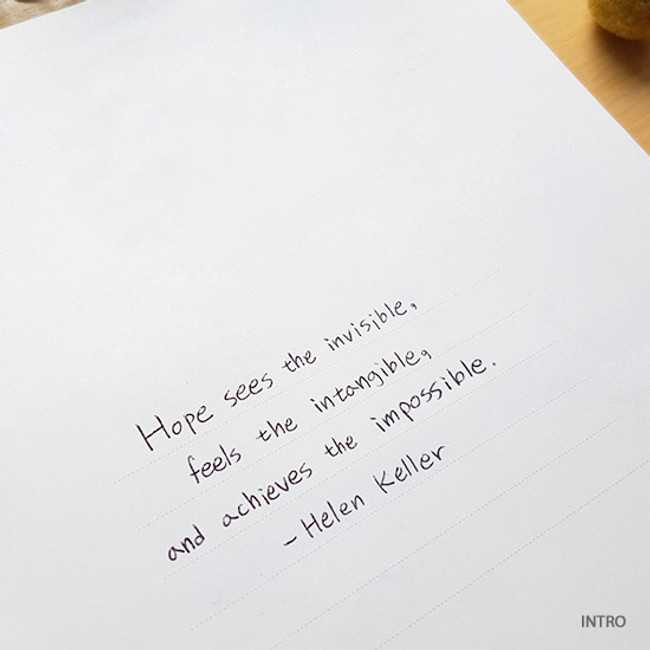 Hope sees the invisible,
feels the intangible,
and achieves the impossible.
- Helen Keller
INTRO